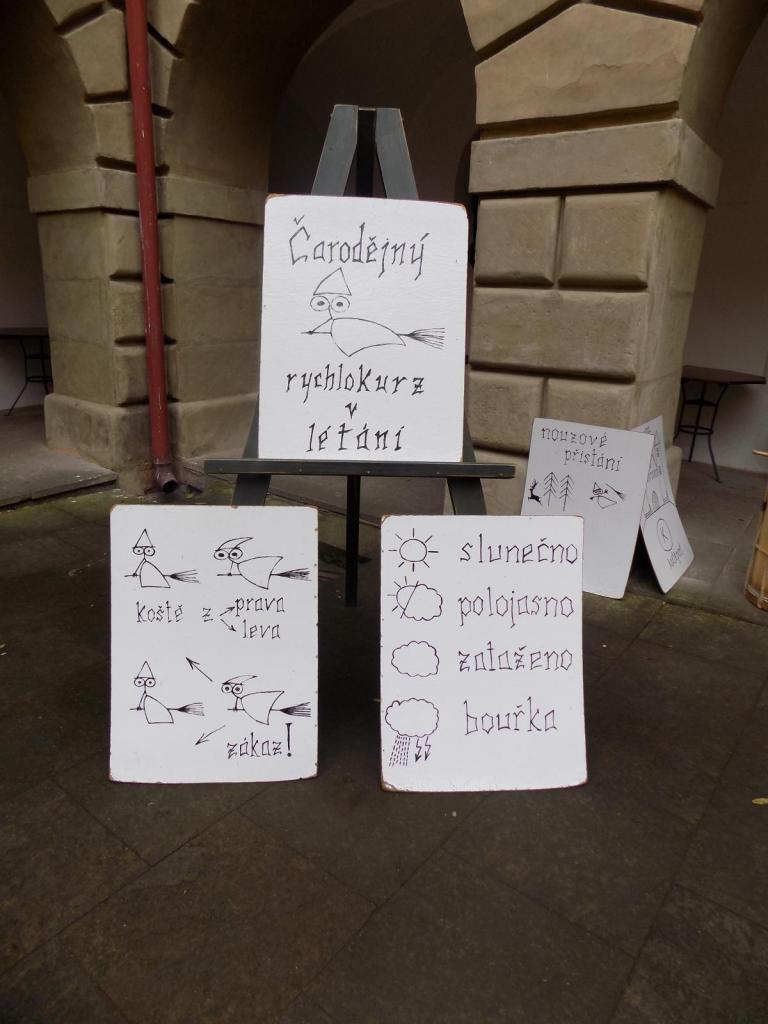 Čarodějný
rychlokurz
v
létání
nouzové
přistání
K
koště z prava
leva
zákaz!
slunečno
polojasno
zataženo
bouřka